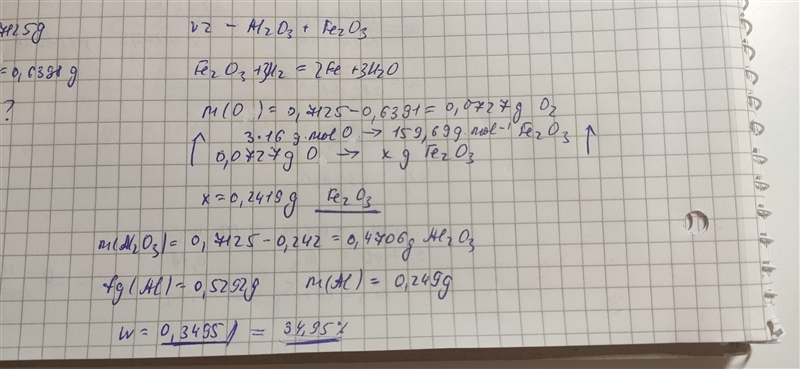 7125g
vz - Al₂O₃ + Fe₂O₃
= 0,6391g
Fe₂O₃ + 3H₂ = 2Fe + 3H₂O
?
m(O) = 0,7125 - 0,6391 = 0,0727g O₂
3·16 g·mol O → 159,69 g·mol⁻¹ Fe₂O₃
0,0727g O → x g Fe₂O₃
x = 0,2419 g Fe₂O₃
m(Al₂O₃) = 0,7125 - 0,242 = 0,4706g Al₂O₃
fg(Al) - 0,5292g m(Al) = 0,249g
w = 0,3495 = 34,95%